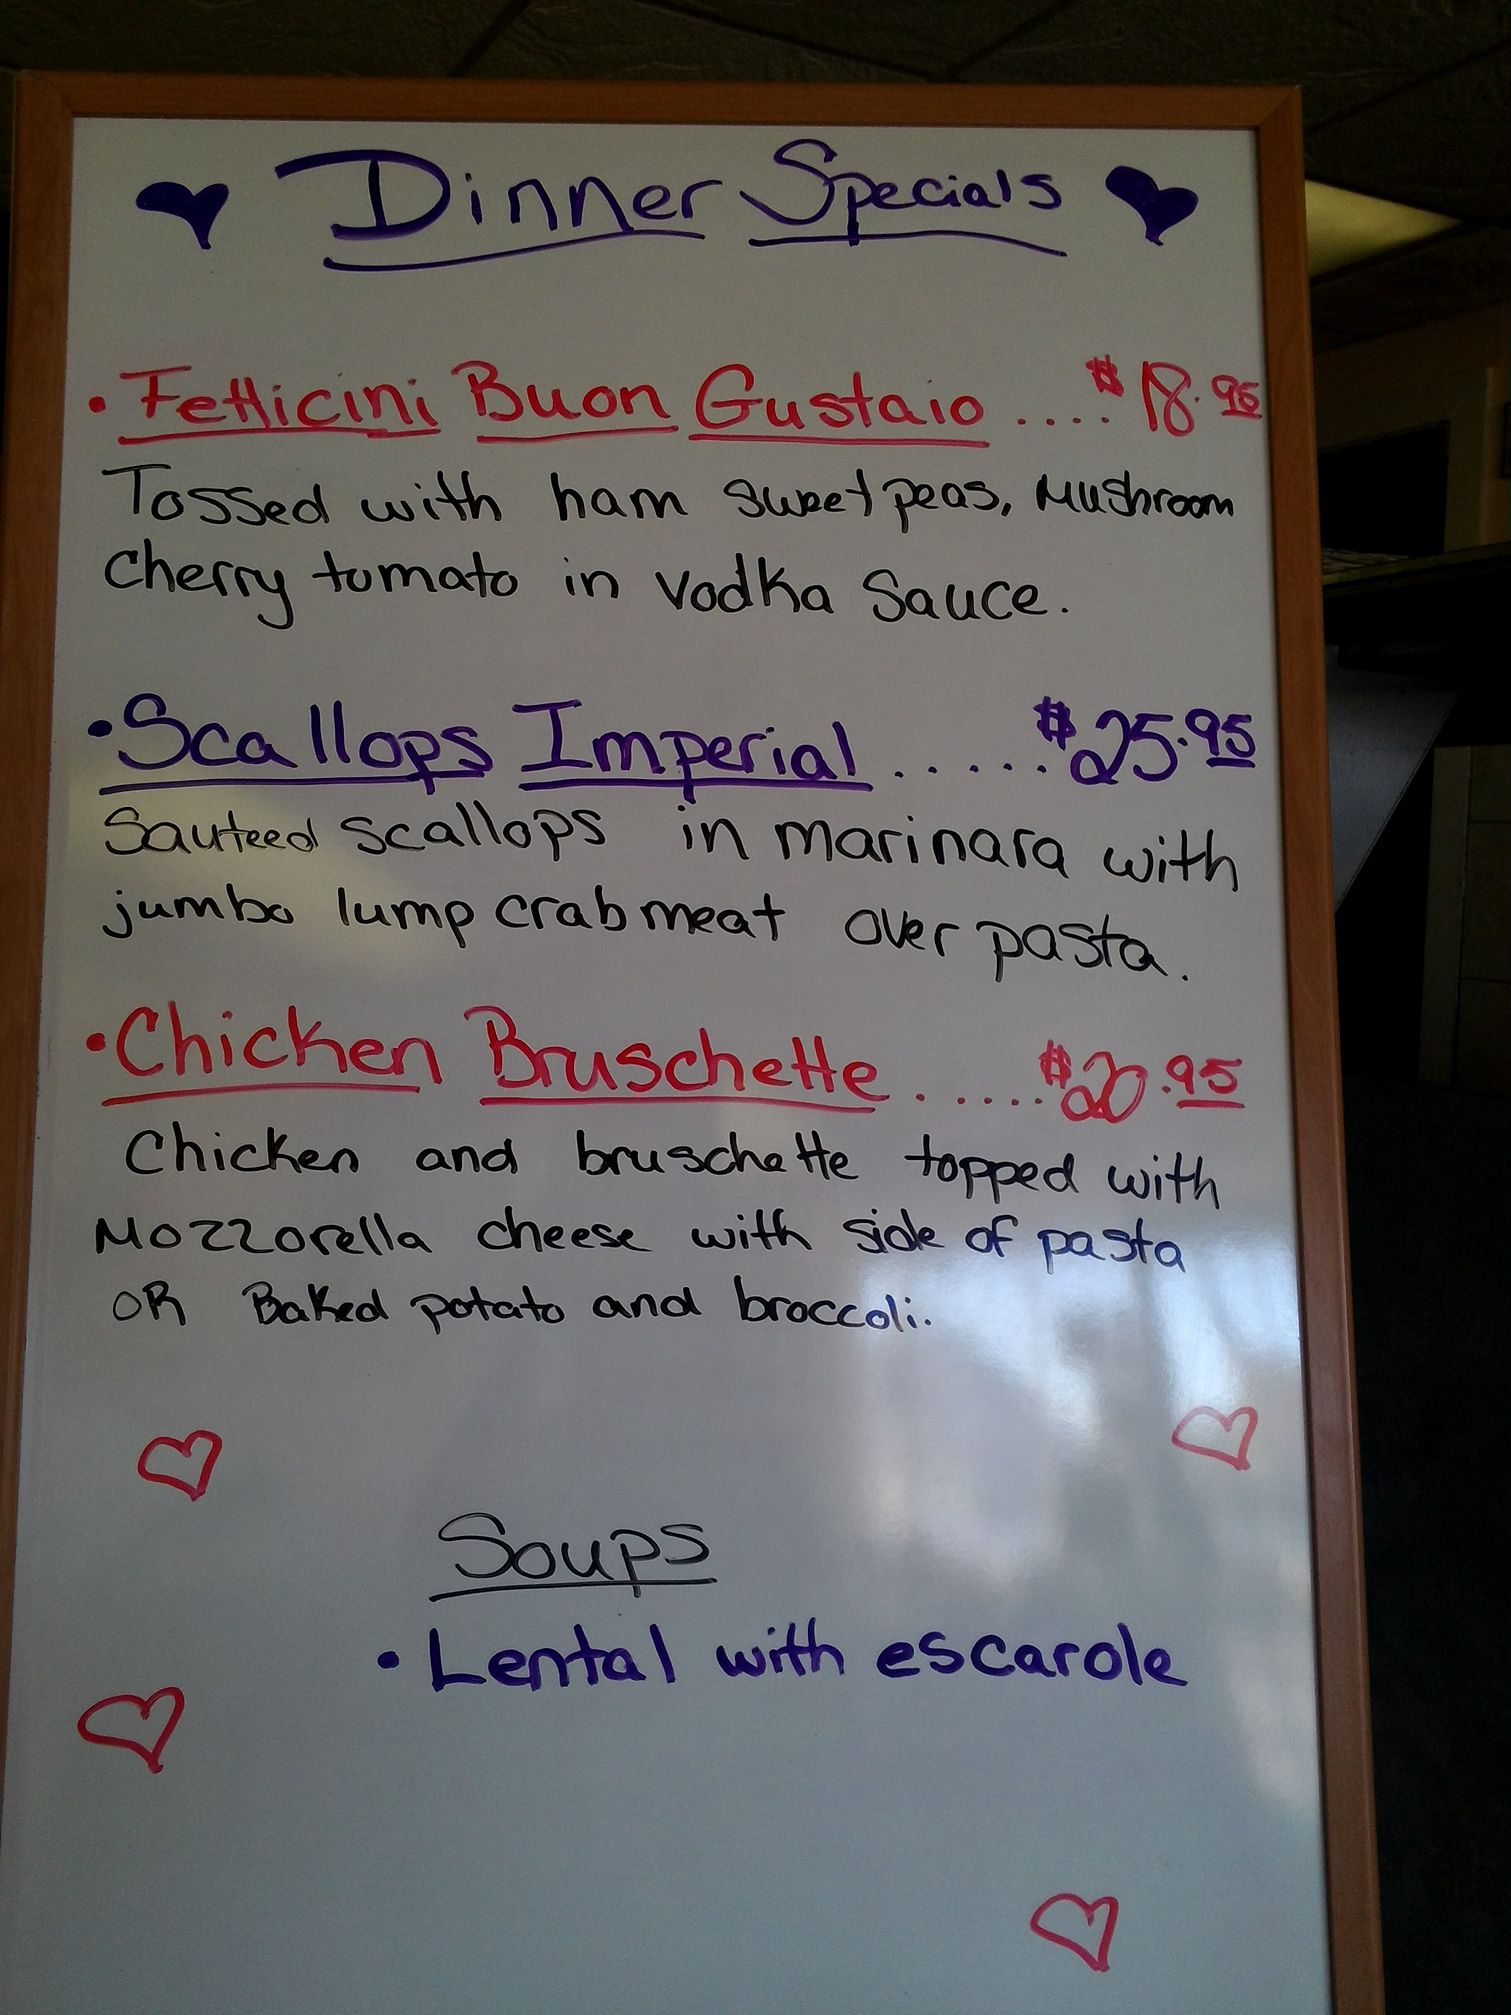 Dinner Specials
• Fetticini Buon Gustaio .... $18.95
Tossed with ham sweet peas, Mushroom
Cherry tomato in vodka Sauce.
• Scallops Imperial ...... $25.95
Sauteed scallops in marinara with
jumbo lump crab meat over pasta.
• Chicken Bruschette ...... $20.95
Chicken and bruschette topped with
Mozzorella cheese with side of pasta
OR Baked potato and broccoli.
Soups
• Lental with escarole